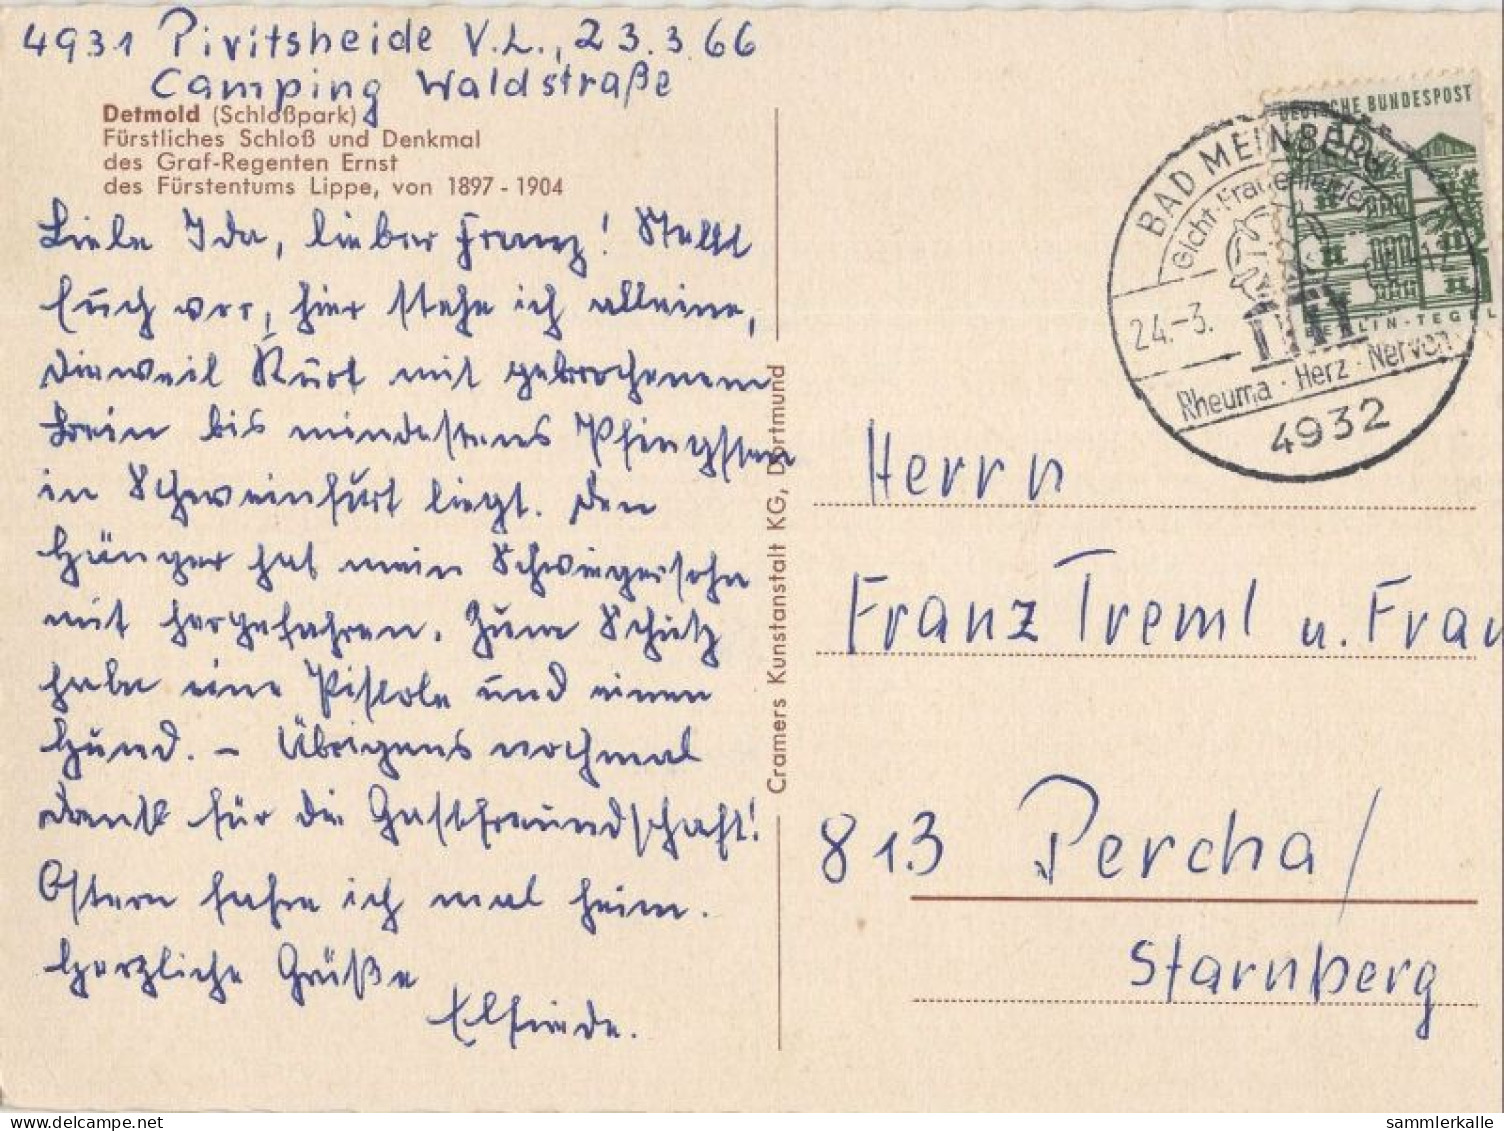 4931 Pivitsheide V.L., 23.3.66
Camping Waldstraße
Detmold (Schloßpark)
Fürstliches Schloß und Denkmal
des Graf-Regenten Ernst
des Fürstentums Lippe, von 1897 - 1904
Liebe Ida, lieber Franz! Stellt
Euch vor, hier stehe ich alleine,
dieweil Kurt mit gebrochenem
Bein bis mindestens Pfingsten
in Schweinfurt liegt. Den
Hänger hat mein Schwiegersohn
mit hergefahren. Zum Schutz
habe eine Pistole und einen
Hund. – Übrigens nochmal
Dank für die Gastfreundschaft!
Ostern fahre ich mal heim.
Herzliche Grüße
Elfriede.
Cramers Kunstanstalt KG, Dortmund
DEUTSCHE BUNDESPOST
BERLIN-TEGEL
BAD MEINBERG
Gicht·Frauenleiden
24.-3.
Rheuma · Herz · Nerven
4932
Herrn
Franz Treml u. Frau
813 Percha/
Starnberg
delcampe.net
sammlerkalle